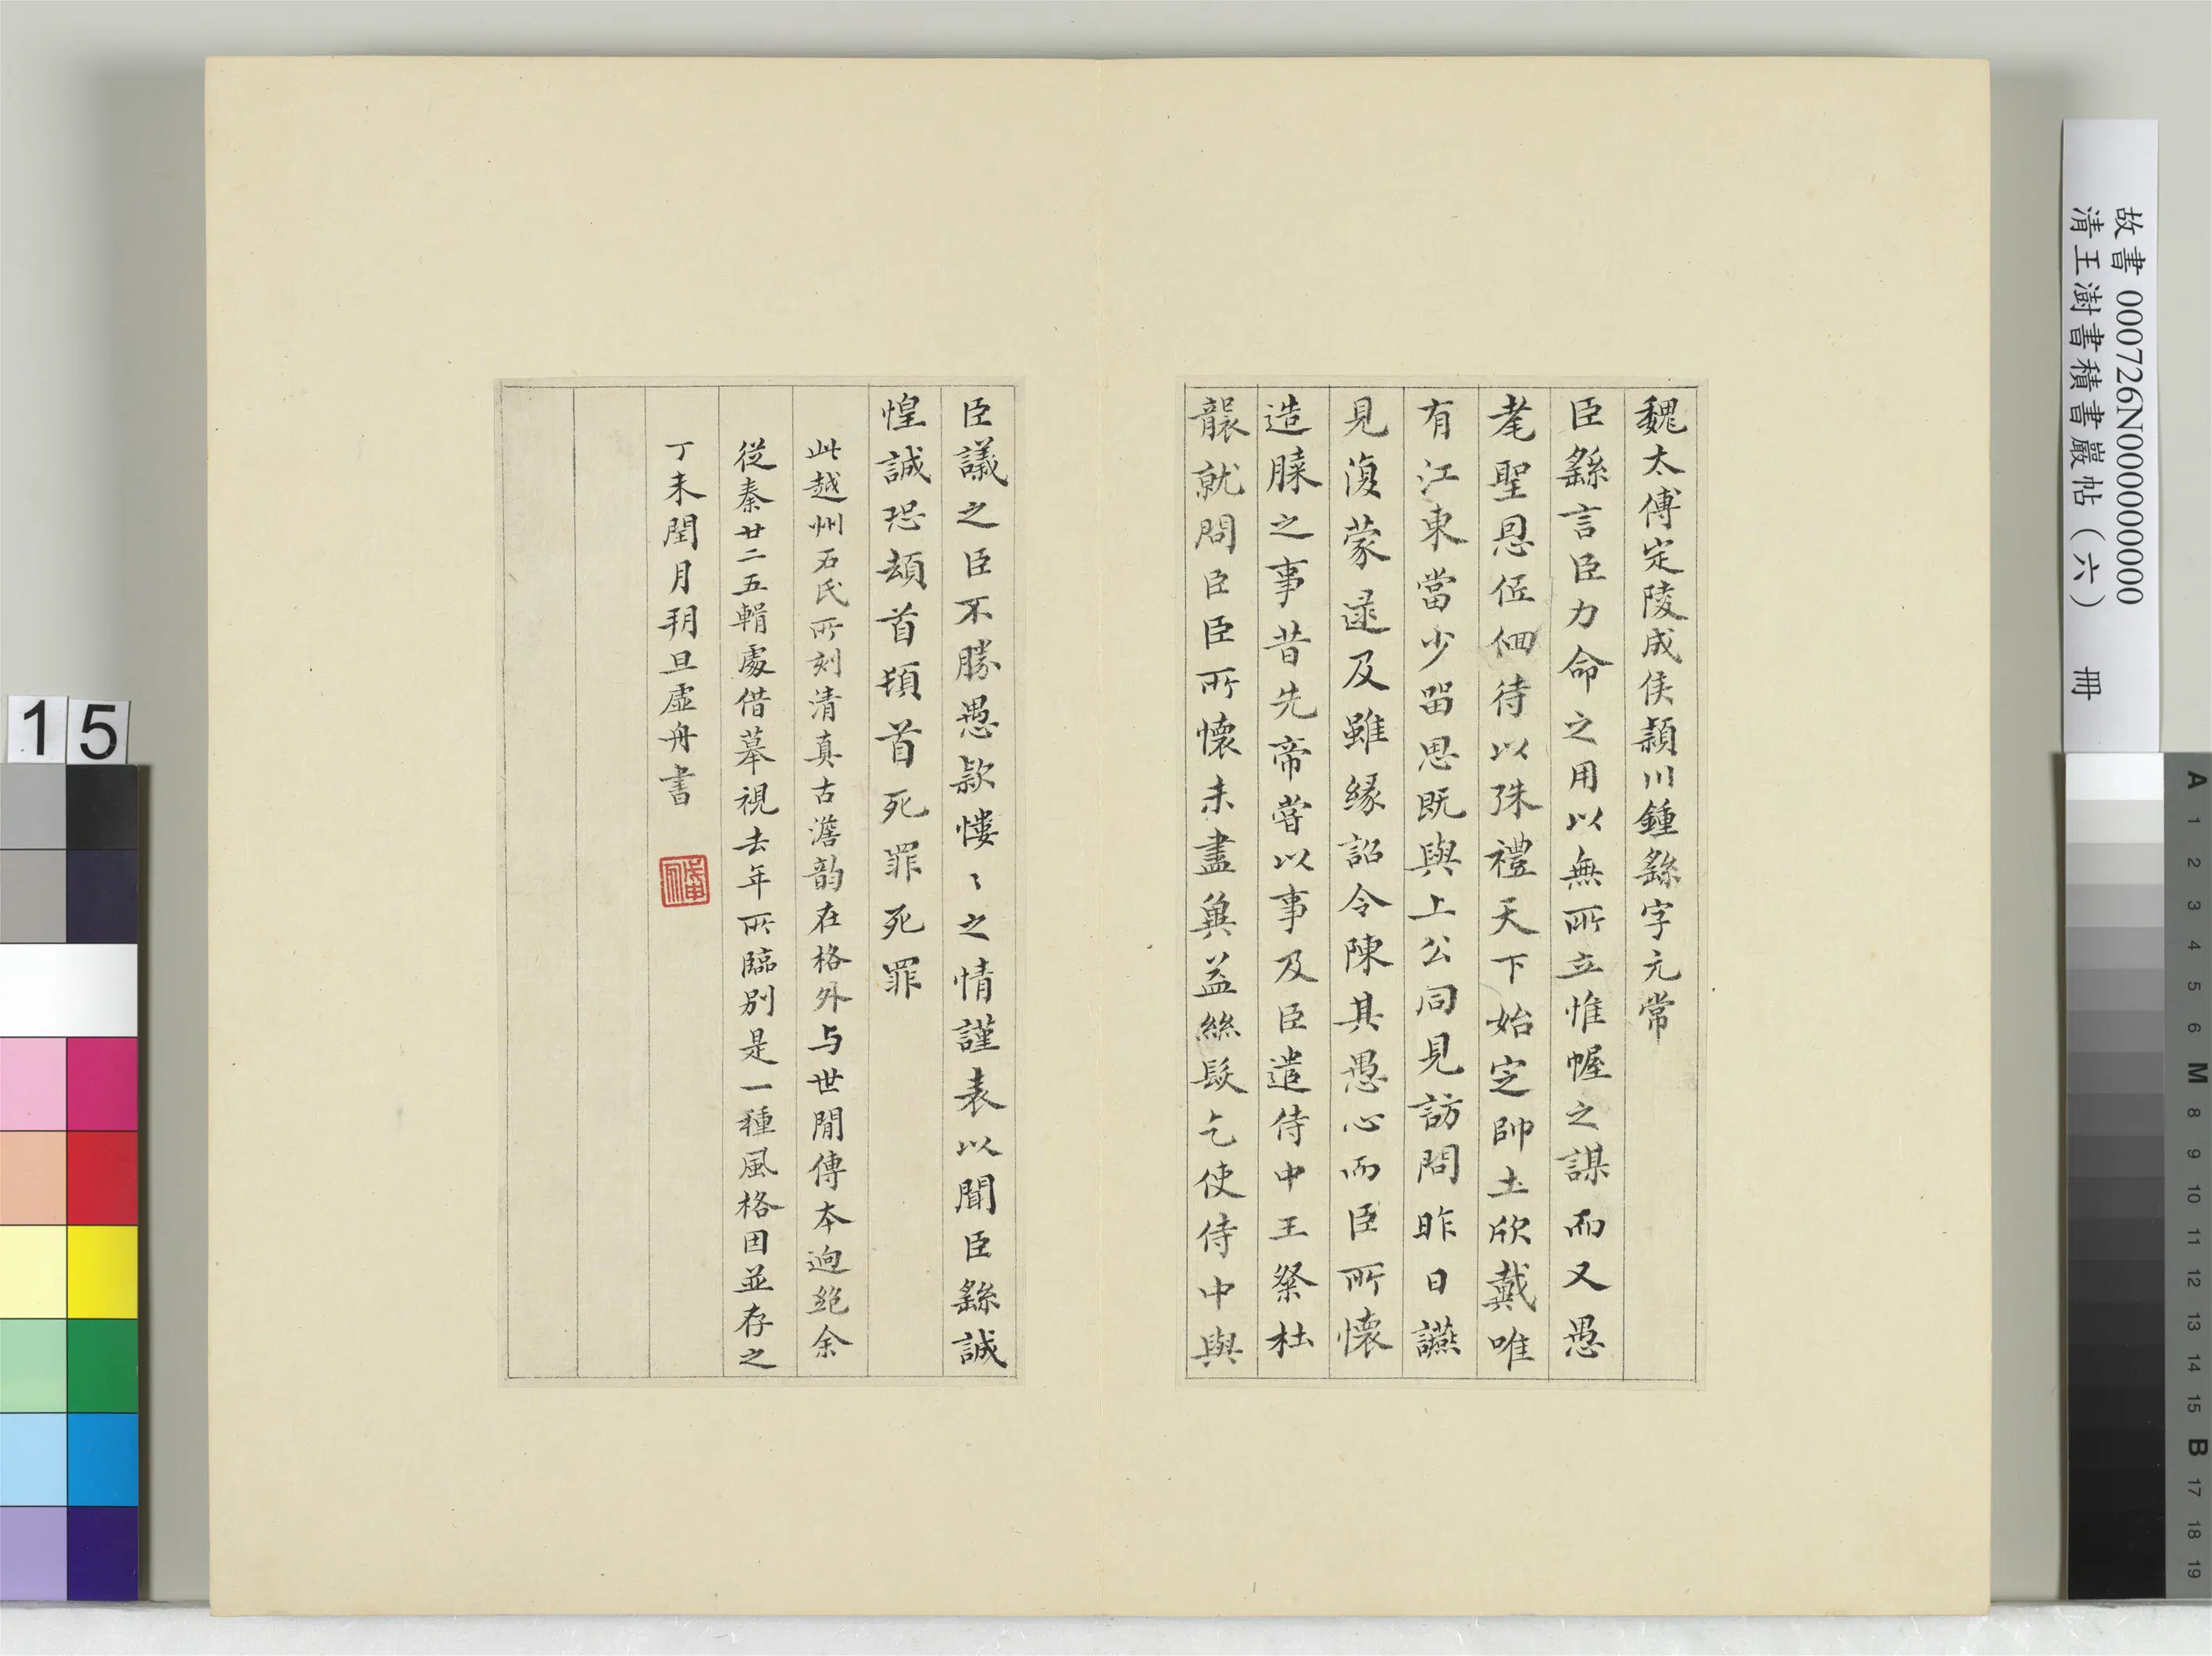 魏太傅定陵成侯潁川鍾繇字元常
臣繇言臣力命之用以無所立惟幄之謀而又愚
耄聖恩低佪待以殊禮天下始定帥土欣戴唯
有江東當少留思既與上公同見訪問昨日讌
見復蒙逮及雖緣詔令陳其愚心而臣所懷
造膝之事昔先帝嘗以事及臣遣侍中王粲杜
襲就問臣臣所懷未盡冀益絲髮乞使侍中與
臣議之臣不勝愚款慺〻之情謹表以聞臣繇誠
惶誠恐頓首頓首死罪死罪
此越州石氏所刻清真古澹韵在格外与世間傳本迥絕余
從秦廿二五輯處借摹視去年所臨別是一種風格因並存之
丁未閏月朔旦虛舟書
故書 000726N000000000
清王澍書積書巖帖（六） 冊
15
A 1 2 3 4 5 6 M 8 9 10 11 12 13 14 15 B 17 18 19